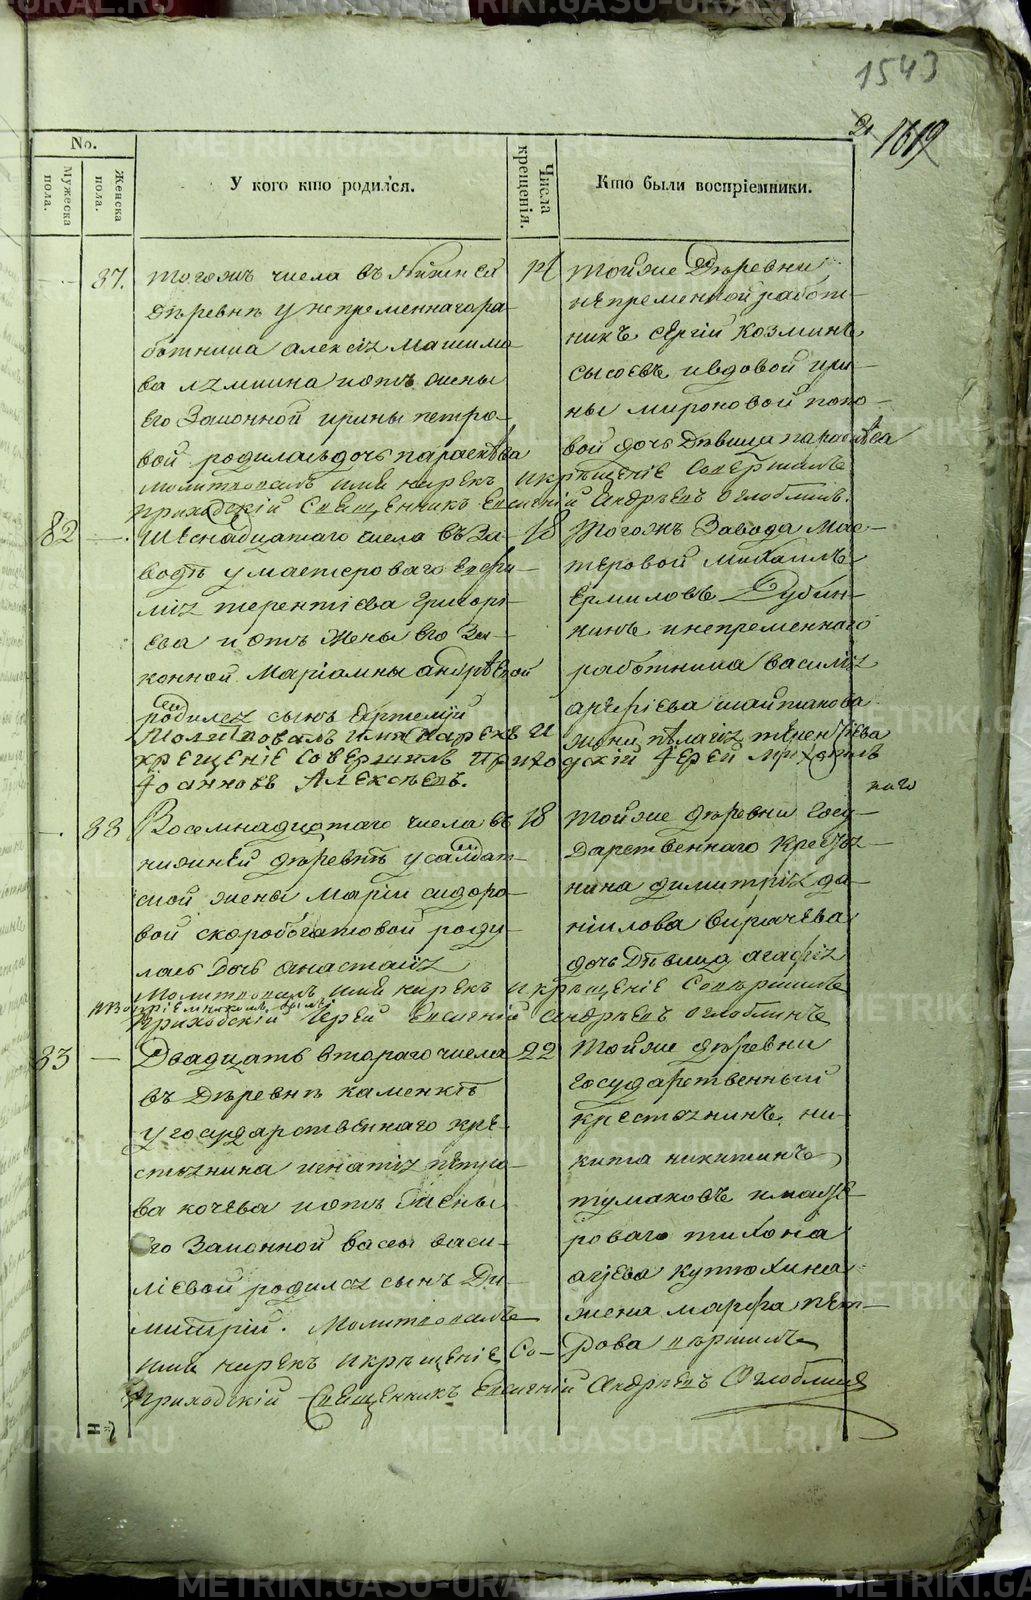 1543
1619
No.
Мужеска пола.
Женска пола.
У кого кто родился.
Числа крещенія.
Кто были воспріемники.
87.
тогожъ числа въ Нижней
Деревнѣ у непременнаго ра-
ботника алексія
его Законной ирины петро-
вой родилась дочь параскѣва
молитвовалъ имя нарекъ и крещеніе Совершилъ
приходскій Священникъ Евгеній Андреевъ Оглоблинъ.
тойже Деревни
непременной работ-
никъ сергій козминъ
сысоевъ и вдовой ири-
ны мироновой попо-
вой дочь Девица параскева
82
Шеснадцатаго числа въ За-
водѣ у мастероваго
терентіева григорі-
ева и отъ жены его За-
конной Маріамны андреевой
родился сынъ Артемій
Молитвовалъ имя нарекъ и
крещеніе Совершилъ Приходскій Іерей Михаилъ
Іоанновъ Алексѣевъ.
18
Тогожъ Завода мас-
теровой михаилъ
Ермиловъ Дубин-
нинъ и непременнаго
работника василія
шайтанова
жена пелагія терентіева
88
Восемнадцатаго числа въ
нижней деревнѣ у салдат-
ской жены маріи сидоро-
вой скоробогатовой роди-
лась Дочь анастасія
Молитвовалъ имя нарекъ и крещеніе Совершилъ
Приходскій Іерей Евгеній Андреевъ Оглоблинъ
18
тойже деревни Госу-
Дарственнаго Кресть-
нина димитрія да-
ніилова
дочь Девица агафія
83
Двадцать втораго числа
въ Деревнѣ каменкѣ
у государственнаго кре-
стьянина игнатія петро-
ва кочева и отъ жены
Его Законной васы васи-
ліевой родился сынъ Ди-
митрій. Молитвовалъ
имя нарекъ и крещеніе Со-
вершилъ
Приходскій Священникъ Евгеній Андреевъ Оглоблинъ
22
Тойже деревни
Государственный
крестьянинъ ни-
кита никитинъ
тумаковъ и масте-
роваго тихона
жена марфа пет-
рова
METRIKI.GASO-URAL.RU